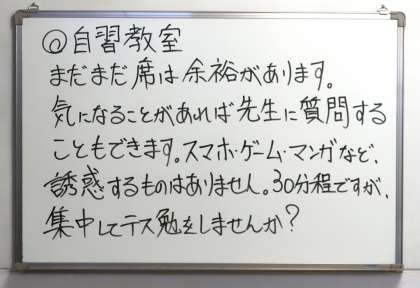 ◎自習教室
まだまだ席は余裕があります。
気になることがあれば先生に質問する
こともできます。スマホ・ゲーム・マンガなど、
誘惑するものはありません。30分程ですが、
集中してテス勉をしませんか?